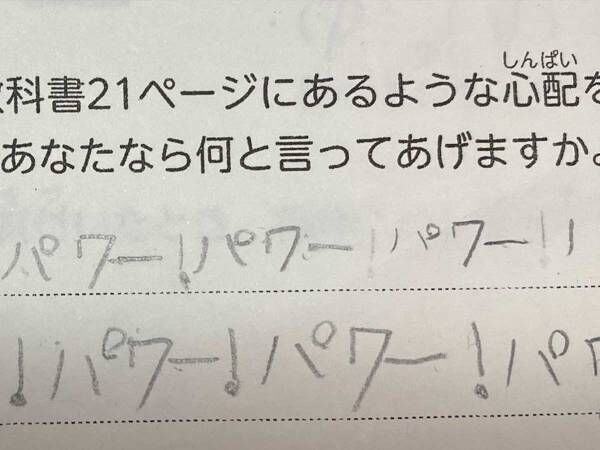 しんぱい
教科書21ページにあるような心配を
あなたなら何と言ってあげますか。
パワー!パワー!パワー!
!パワー!パワー!パワ